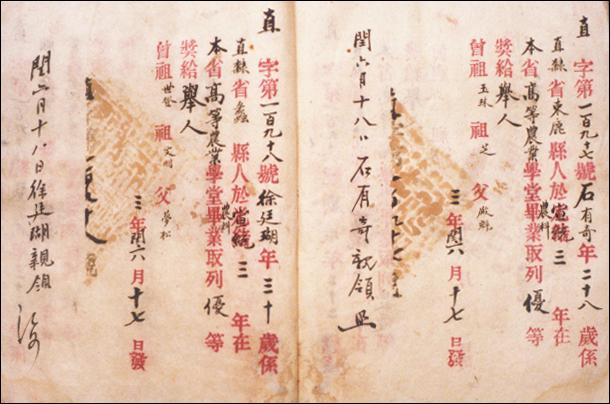 直字第一百九十七號石有奇年二十八歲係
直隸省束鹿縣人於宣統三年在
本省高等農業學堂農科畢業取列優等
獎給舉人
曾祖玉珠祖芝父殿魁
三年閏六月十七日發
閏六月十八日石有奇親領
直字第一百九十八號徐廷瑚年三十歲係
直隸省蠡縣人於宣統三年在
本省高等農業學堂農科畢業取列優等
獎給舉人
曾祖世登祖文明父夢松
三年閏六月十七日發
閏六月十八日徐廷瑚親領